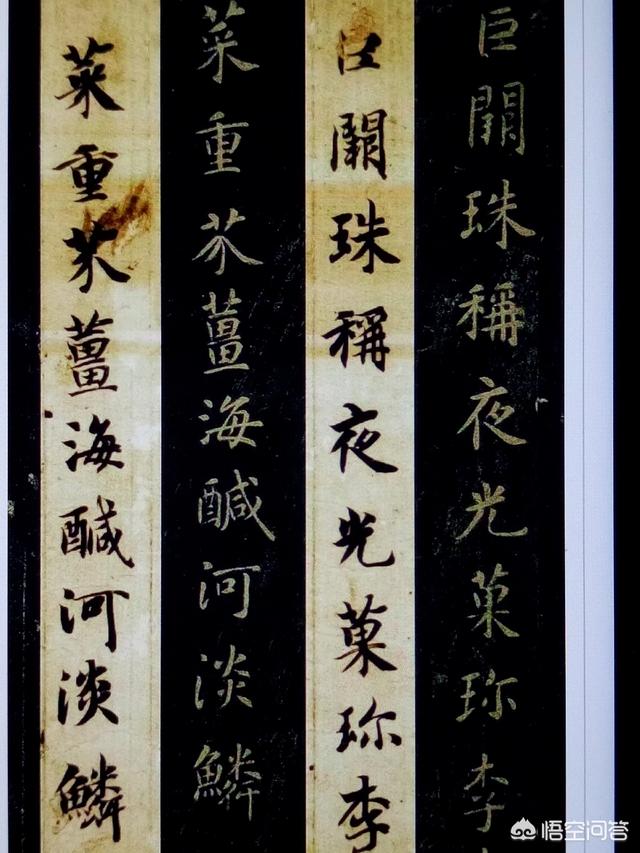 巨闕珠稱夜光菓珎李
巨闕珠稱夜光菓珎李
菜重芥薑海醎河淡鱗
菜重芥薑海醎河淡鱗
悟空问答